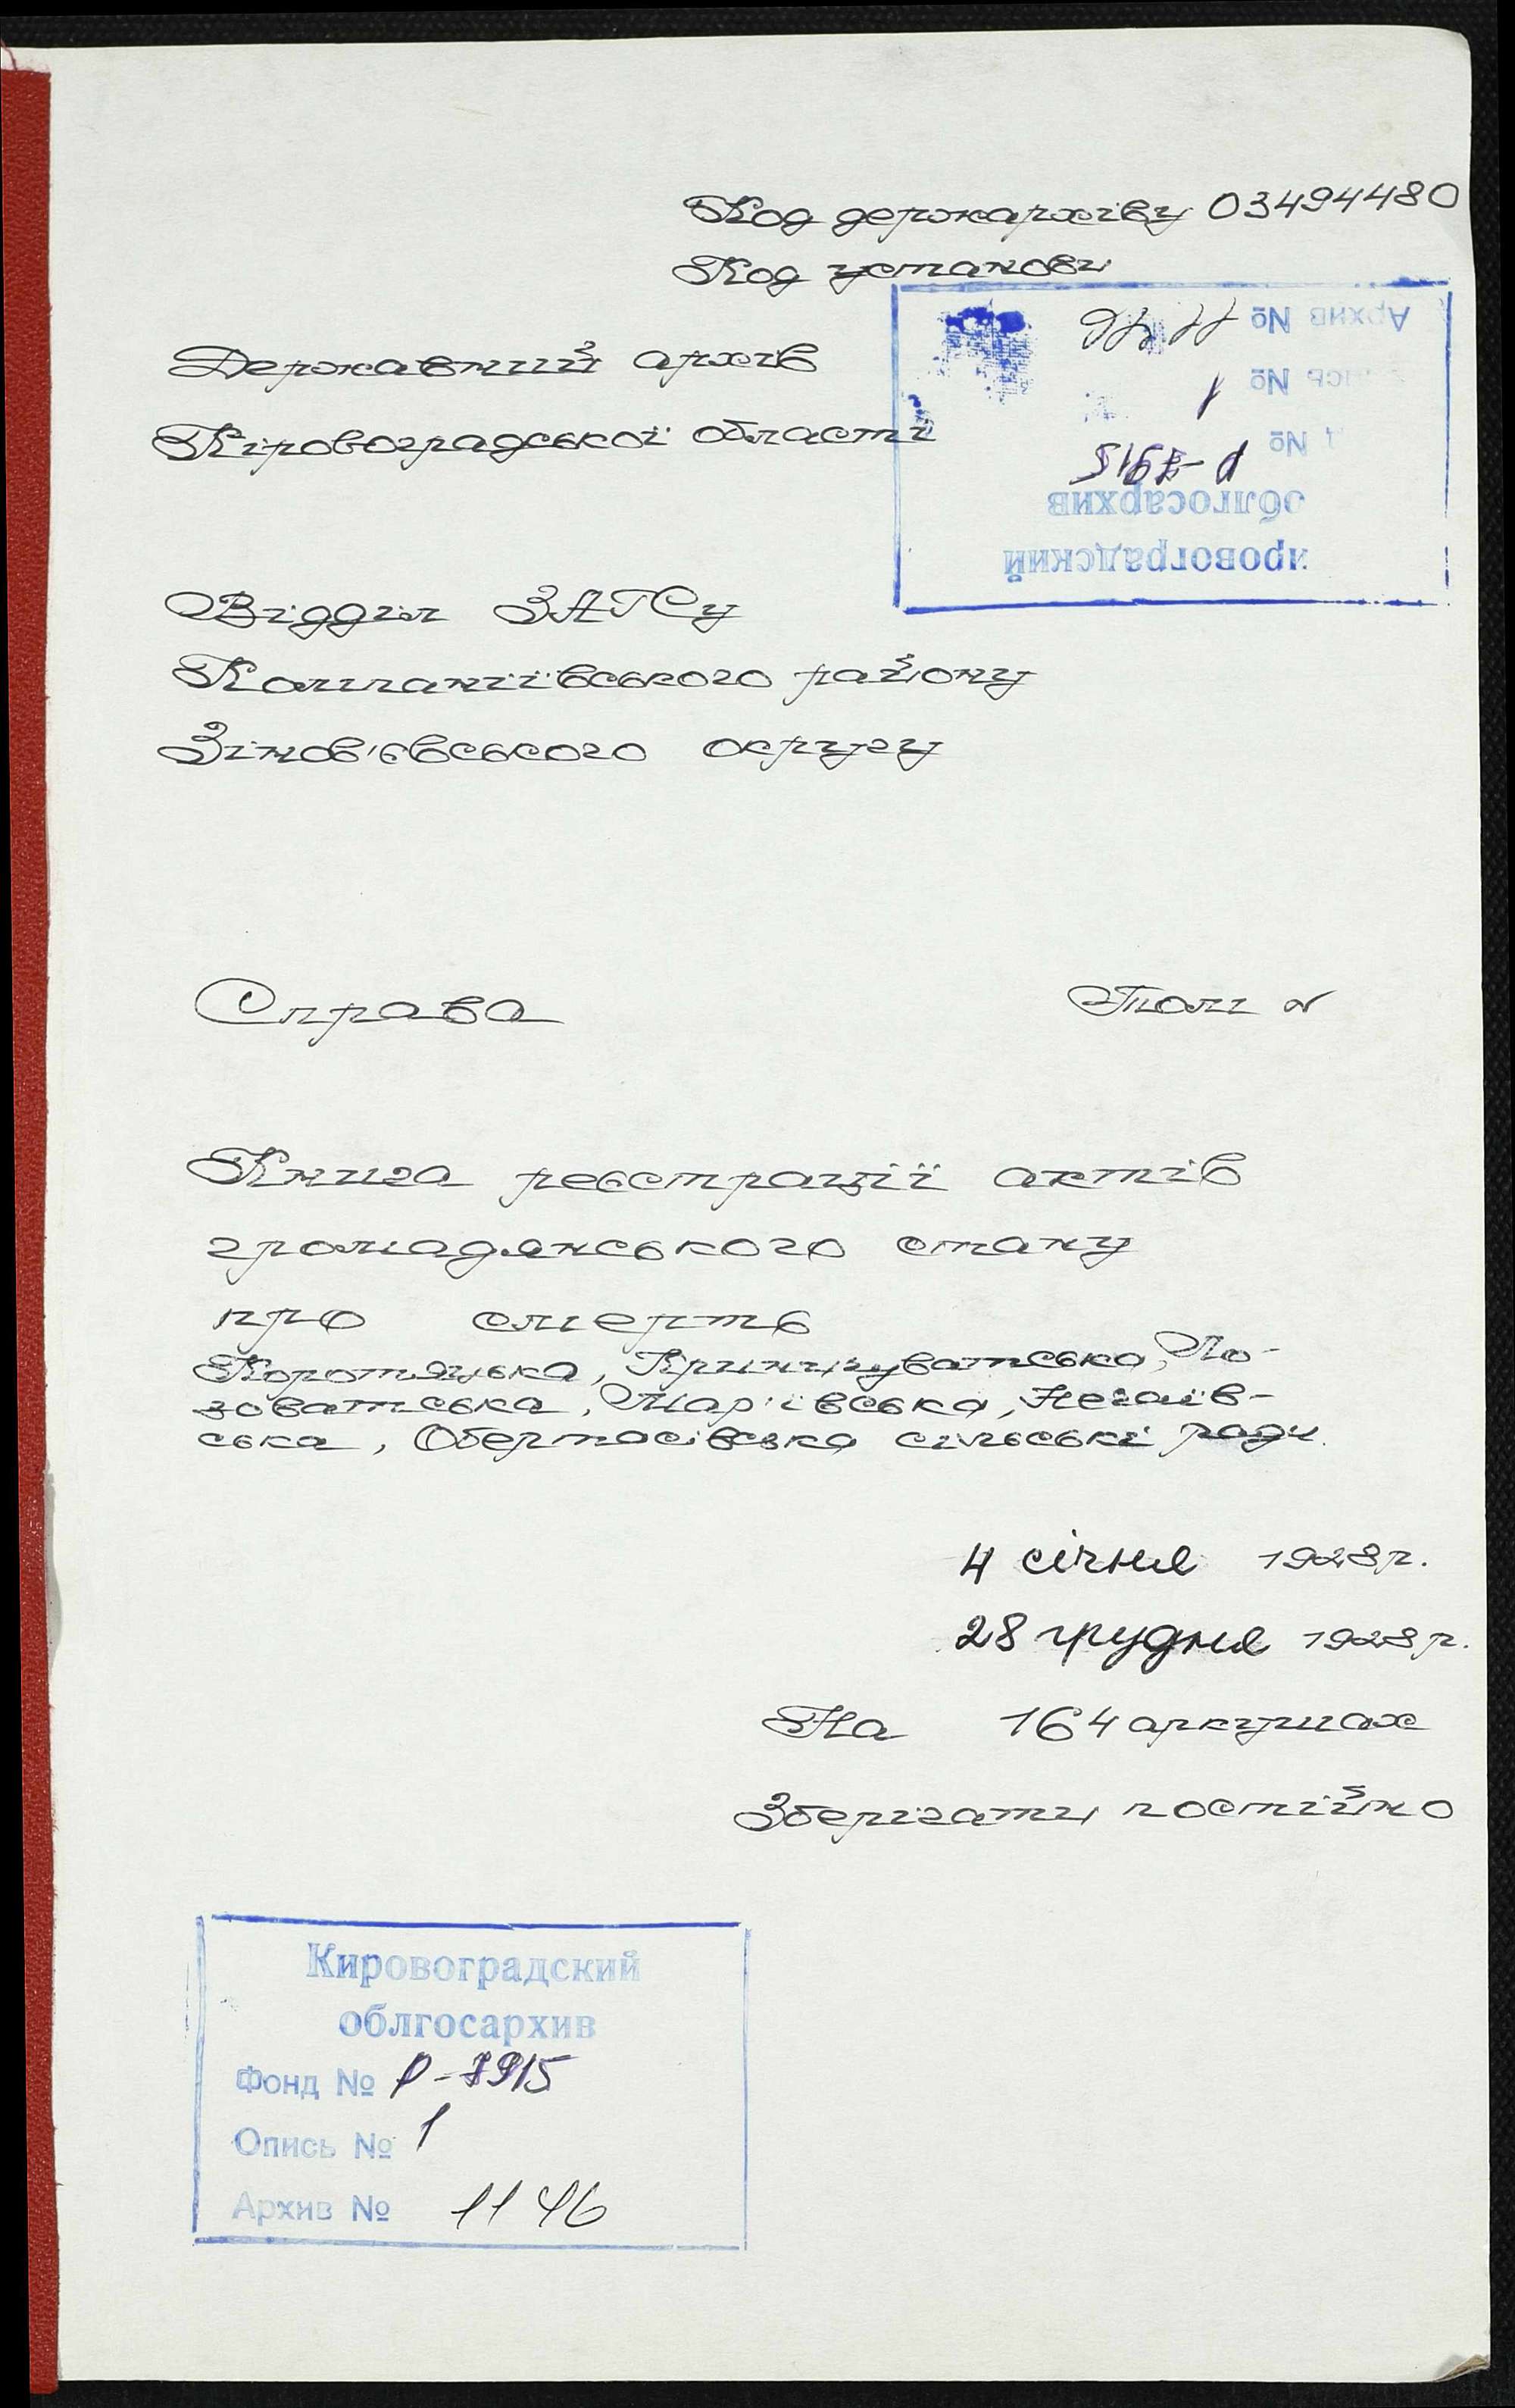 Код держархіву 03494480
Код установи
Архив № 1146
№ 1
№ Р-7915
облгосархив
ировоградский
Державний архів
Кіровоградської області
Відділ ЗАГСу
Компаніївського району
Зінов'євського округу
Справа Том №
Книга реєстрації актів
громадянського стану
про смерть
Коротяцька, Криничуватська, Ло-
зоватська, Мар'ївська, Негаїв-
ська, Обертасівська сільські ради.
4 січня 1928р.
28 грудня 1928р.
На 164 аркушах
Зберігати постійно
Кировоградский
облгосархив
Фонд № Р-7915
Опись № 1
Архив № 1146